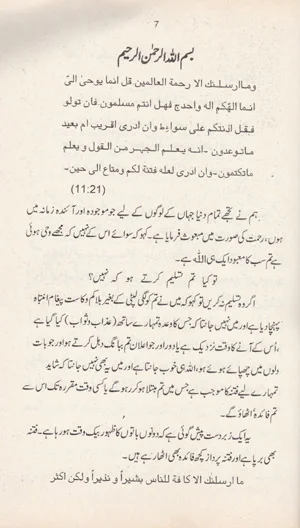 7
بسم اللہ الرحمٰن الرحیم
وما ارسلنك الا رحمة العالمین قل انما یوحیٰ الیّ
انما الٰهكم اله واحدج فهل انتم مسلمون۔ فان تولو
فقل اذنتكم علی سواءٍط وان ادری اقریب ام بعید
ماتوعدون۔ انه یعلم الجهر من القول و یعلم
ماتكتمون۔ وان ادری لعله فتنة لكم ومتاع الی حین۔
(11:21)
ہم نے تجھے تمام دنیا جہاں کے لوگوں کے لیے جو موجودہ اور آئندہ زمانہ میں
ہوں، رحمت کی صورت میں مبعوث فرمایا ہے۔ کہو کہ سوائے اس کے نہیں کہ مجھے وحی ہوئی
ہے تم سب کا معبود ایک ہی اللہ ہے۔
تو کیا تم تسلیم کرتے ہو کہ نہیں؟
اگر وہ تسلیم نہ کریں تو کہو کہ میں نے تم کو لگی لپٹی کے بغیر بلا کم وکاست پیغام انتباہ
پہنچا دیا ہے اور میں نہیں جانتا کہ جس کا وعدہ تمہارے ساتھ (عذاب و ثواب) کیا گیا ہے
اُس کے آنے کا وقت نزدیک ہے یا دور اور جو اعلان تم ببانگ دہل کرتے ہو اور جو بات
دلوں میں چھپائے ہوئے ہو، اللہ ہی خوب جانتا ہے اور میں یہ بھی نہیں جانتا کہ شاید
تمہارے لیے فتنہ کا موجب ہے جس میں تم مبتلا ہو کر رہو گے یا کسی وقت مقررہ تک اس سے
تم فائدہ اٹھاؤ گے۔
یہ ایک زبردست پیش گوئی ہے کہ دونوں باتوں کا ظہور بیک وقت ہو رہا ہے۔ فتنہ
بھی برپا ہے اور فتنہ پرداز کچھ فائدہ بھی اٹھا رہے ہیں۔
ما ارسلنك الا كافة للناس بشیراً و نذیراً ولكن اكثر